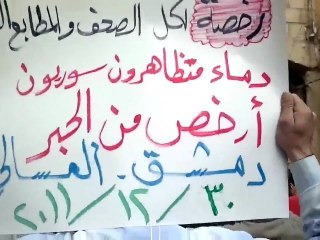 رخصة لكل الصحف والمطابع
دماء متظاهرون سوريون
أرخص من الحبر
دمشق - العسالي
٣٠/١٢/٢٠١١